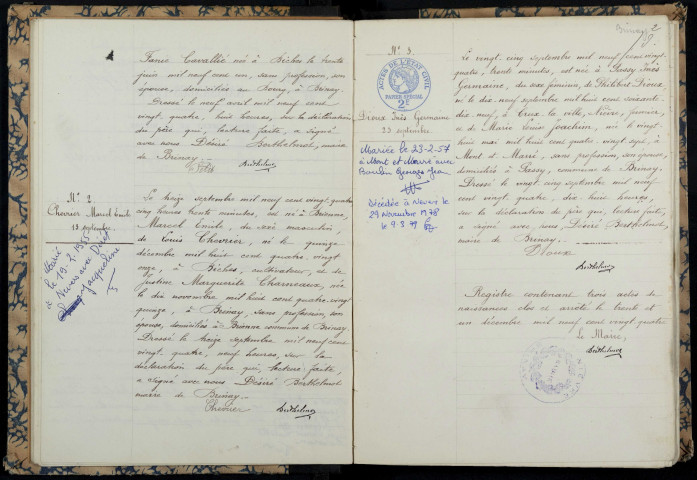 Fanie Cavallié née à Biches le trente
juin mil neuf cent un, sans profession, son
épouse, domiciliés au Poray, à Brinay.
Dressé le neuf avril mil neuf cent
vingt quatre, huit heures, sur la déclaration
du père qui, lecture faite, a signé
avec nous Désiré Berthelmot, maire
de Brinay.
Berthelmot
N° 2
Chevrier Marcel Emile
13 septembre
Marié
le 19.2.1955
à Nevers avec Dévet
Jacqueline
Le treize septembre mil neuf cent vingt quatre
cinq heures trente minutes, est né à Brienne,
Marcel Emile, du sexe masculin,
de Louis Chevrier, né le quinze
décembre mil huit cent quatre vingt
onze, à Biches, cultivateur, et de
Justine Marguerite Charneaux, née
le dix novembre mil huit cent quatre vingt
quinze, à Brinay, sans profession, son
épouse, domiciliés à Brienne commune de Brinay.
Dressé le treize septembre mil neuf cent
vingt quatre, neuf heures, sur la
déclaration du père qui, lecture faite,
a signé avec nous Désiré Berthelmot
maire de Brinay.
Chevrier Berthelmot
Brinay 2
N° 3.
ACTES DE L'ETAT CIVIL
PAPIER SPECIAL
2F
Dioux Inès Germaine
25 septembre
Mariée le 23-2-57
à Mont et Marré avec
Boulin Georges Jean
Décédée à Nevers le
29 Novembre 1978
le 9-8-79
Le vingt cinq septembre mil neuf cent vingt
quatre, trente minutes, est née à Passy Inès
Germaine, du sexe féminin, de Philibert Dioux
né le dix neuf septembre mil huit cent soixante
dix neuf, à Crux la ville, Nièvre, fermier,
et de Marie Louise Joachim, née le vingt
huit mai mil huit cent quatre vingt sept, à
Mont et Marré, sans profession, son épouse,
domiciliés à Passy, commune de Brinay.
Dressé le vingt cinq septembre mil neuf
cent vingt quatre, dix huit heures,
sur la déclaration du père qui, lecture faite,
a signé avec nous Désiré Berthelmot,
maire de Brinay.
Dioux
Berthelmot
Registre contenant trois actes de
naissances clos et arrêté le trente et
un décembre mil neuf cent vingt quatre
Le Maire,
Berthelmot